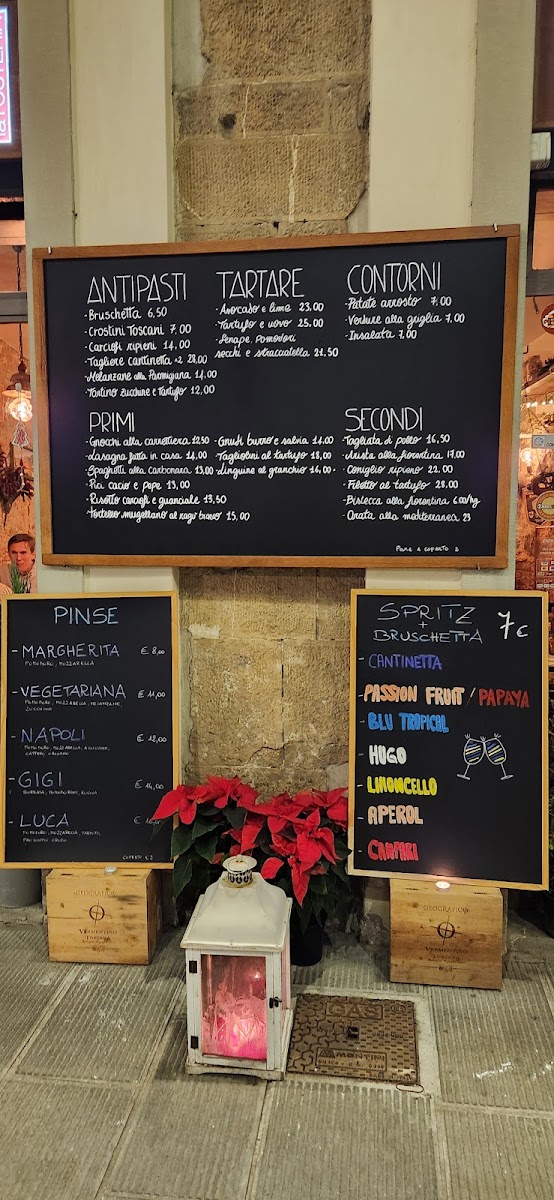 ANTIPASTI
- Bruschetta 6,50
- Crostini Toscani 7,00
- Carciofi ripieni 14,00
- Tagliere Cantinetta x2 28,00
- Melanzane alla Parmigiana 14,00
- Tortino zucchine e tartufo 12,00
TARTARE
- Avocado e lime 23,00
- Tartufo e uovo 25,00
- Senape, Pomodori
secchi e stracciatella 21,50
CONTORNI
- Patate arrosto 7,00
- Verdure alla griglia 7,00
- Insalata 7,00
PRIMI
- Gnocchi alla carrettiera 12,50
- Lasagna fatta in casa 14,00
- Spaghetti alla carbonara 13,00
- Pici cacio e pepe 13,00
- Risotto carciofi e guanciale 13,50
- Tortello mugellano al ragù bianco 15,00
- Gnudi burro e salvia 14,00
- Tagliolini al tartufo 18,00
- Linguine al granchio 16,00
SECONDI
- Tagliata di pollo 16,50
- Arista alla fiorentina 17,00
- Coniglio ripieno 22,00
- Filetto al tartufo 28,00
- Bistecca alla fiorentina 6,00/hg
- Orata alla mediterranea 23
Pane e coperto 3
PINSE
- MARGHERITA € 8,00
POMODORO, MOZZARELLA
- VEGETARIANA € 11,00
POMODORO, MOZZARELLA, MELANZANE,
ZUCCHINE
- NAPOLI € 12,00
POMODORO, MOZZARELLA, ACCIUGHE,
CAPPERI, ORIGANO
- GIGI € 14,00
BURRATA, POMODORINI, RUCOLA
- LUCA €
POMODORO, MOZZARELLA, TARTUFO,
PROSCIUTTO CRUDO
COPERTO € 3
SPRITZ
+
BRUSCHETTA
7€
- CANTINETTA
- PASSION FRUIT / PAPAYA
- BLU TROPICAL
- HUGO
- LIMONCELLO
- APEROL
- CAMPARI
GEOGRAFICO
VERMENTINO
TOSCANA
GEOGRAFICO
VERMENTINO
TOSCANA
GAS
MONTINI